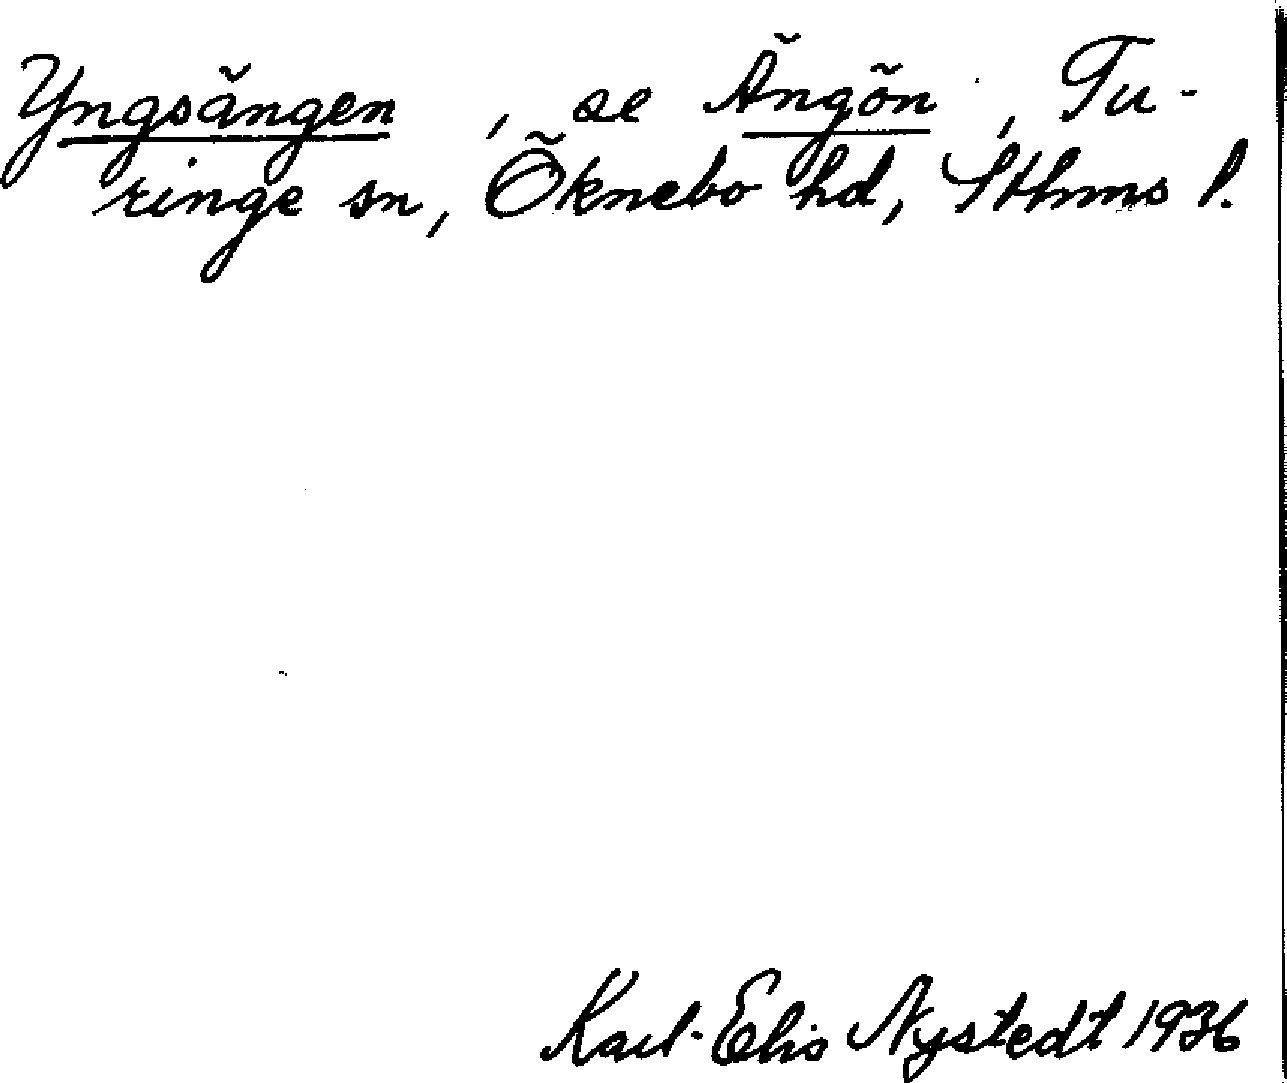 Yngsängen, se Ängön, Tu-
ringe sn, Öknebo hd, Sthms l.
Karl-Elis Nystedt 1936